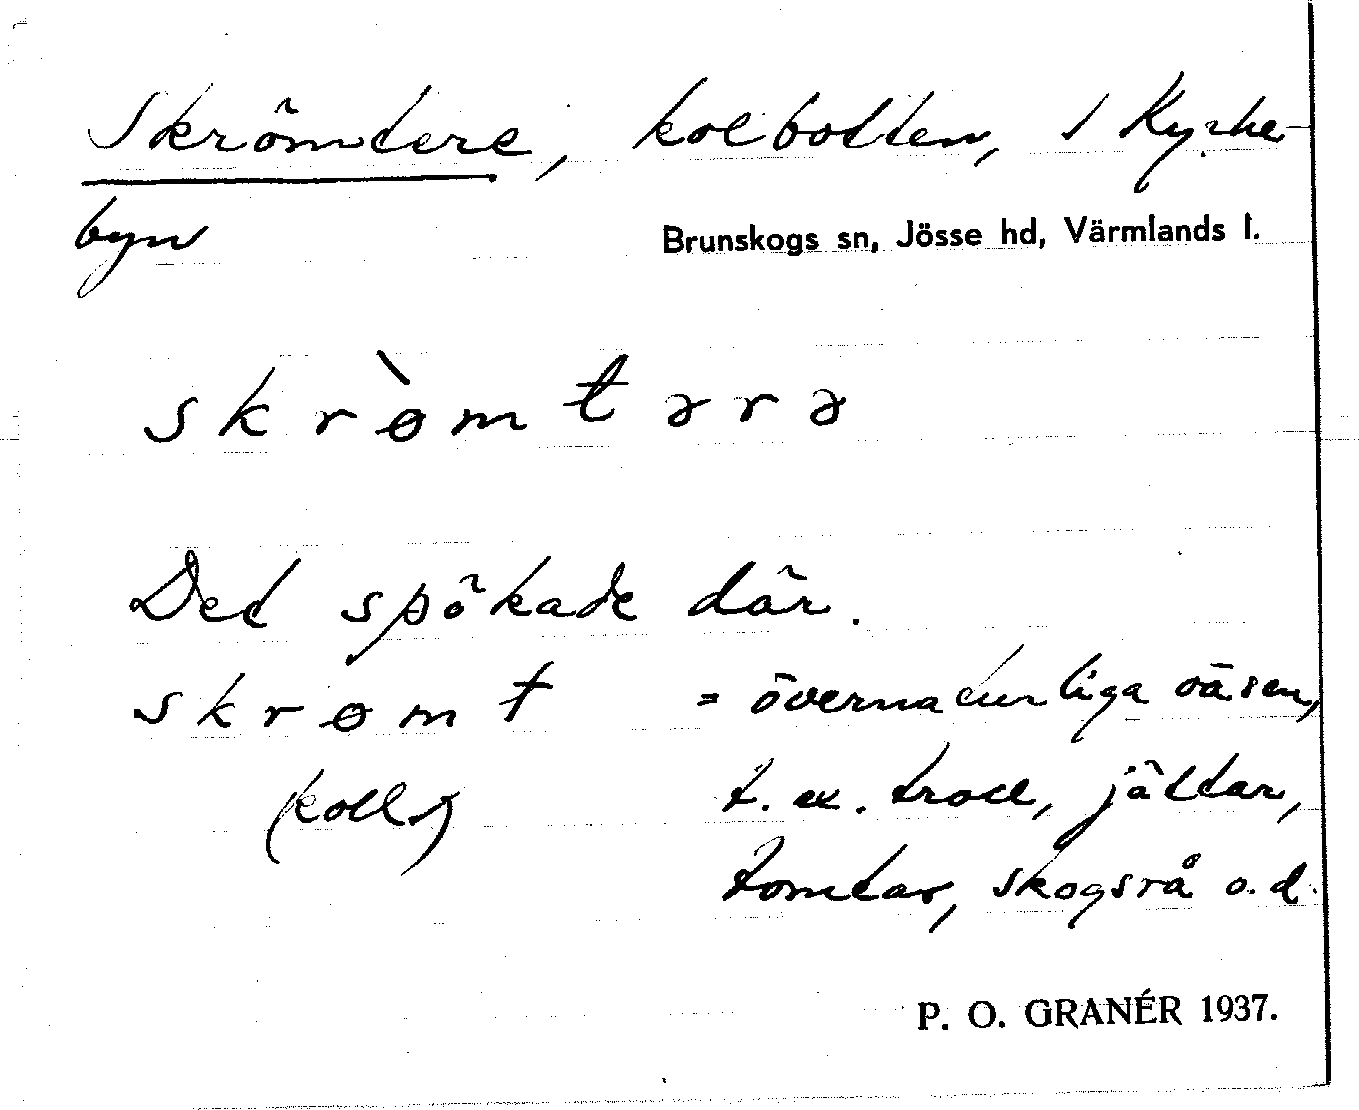 Skrömtere, kolbotten, i Kyrke-
byn
Brunskogs sn, Jösse hd, Värmlands l.
skrømtərə
Det spökade där.
skrømt = övernaturliga väsen,
(koll.) t. ex. troll, jättar,
tomtar, skogsrå o.d.
P. O. GRANÉR 1937.